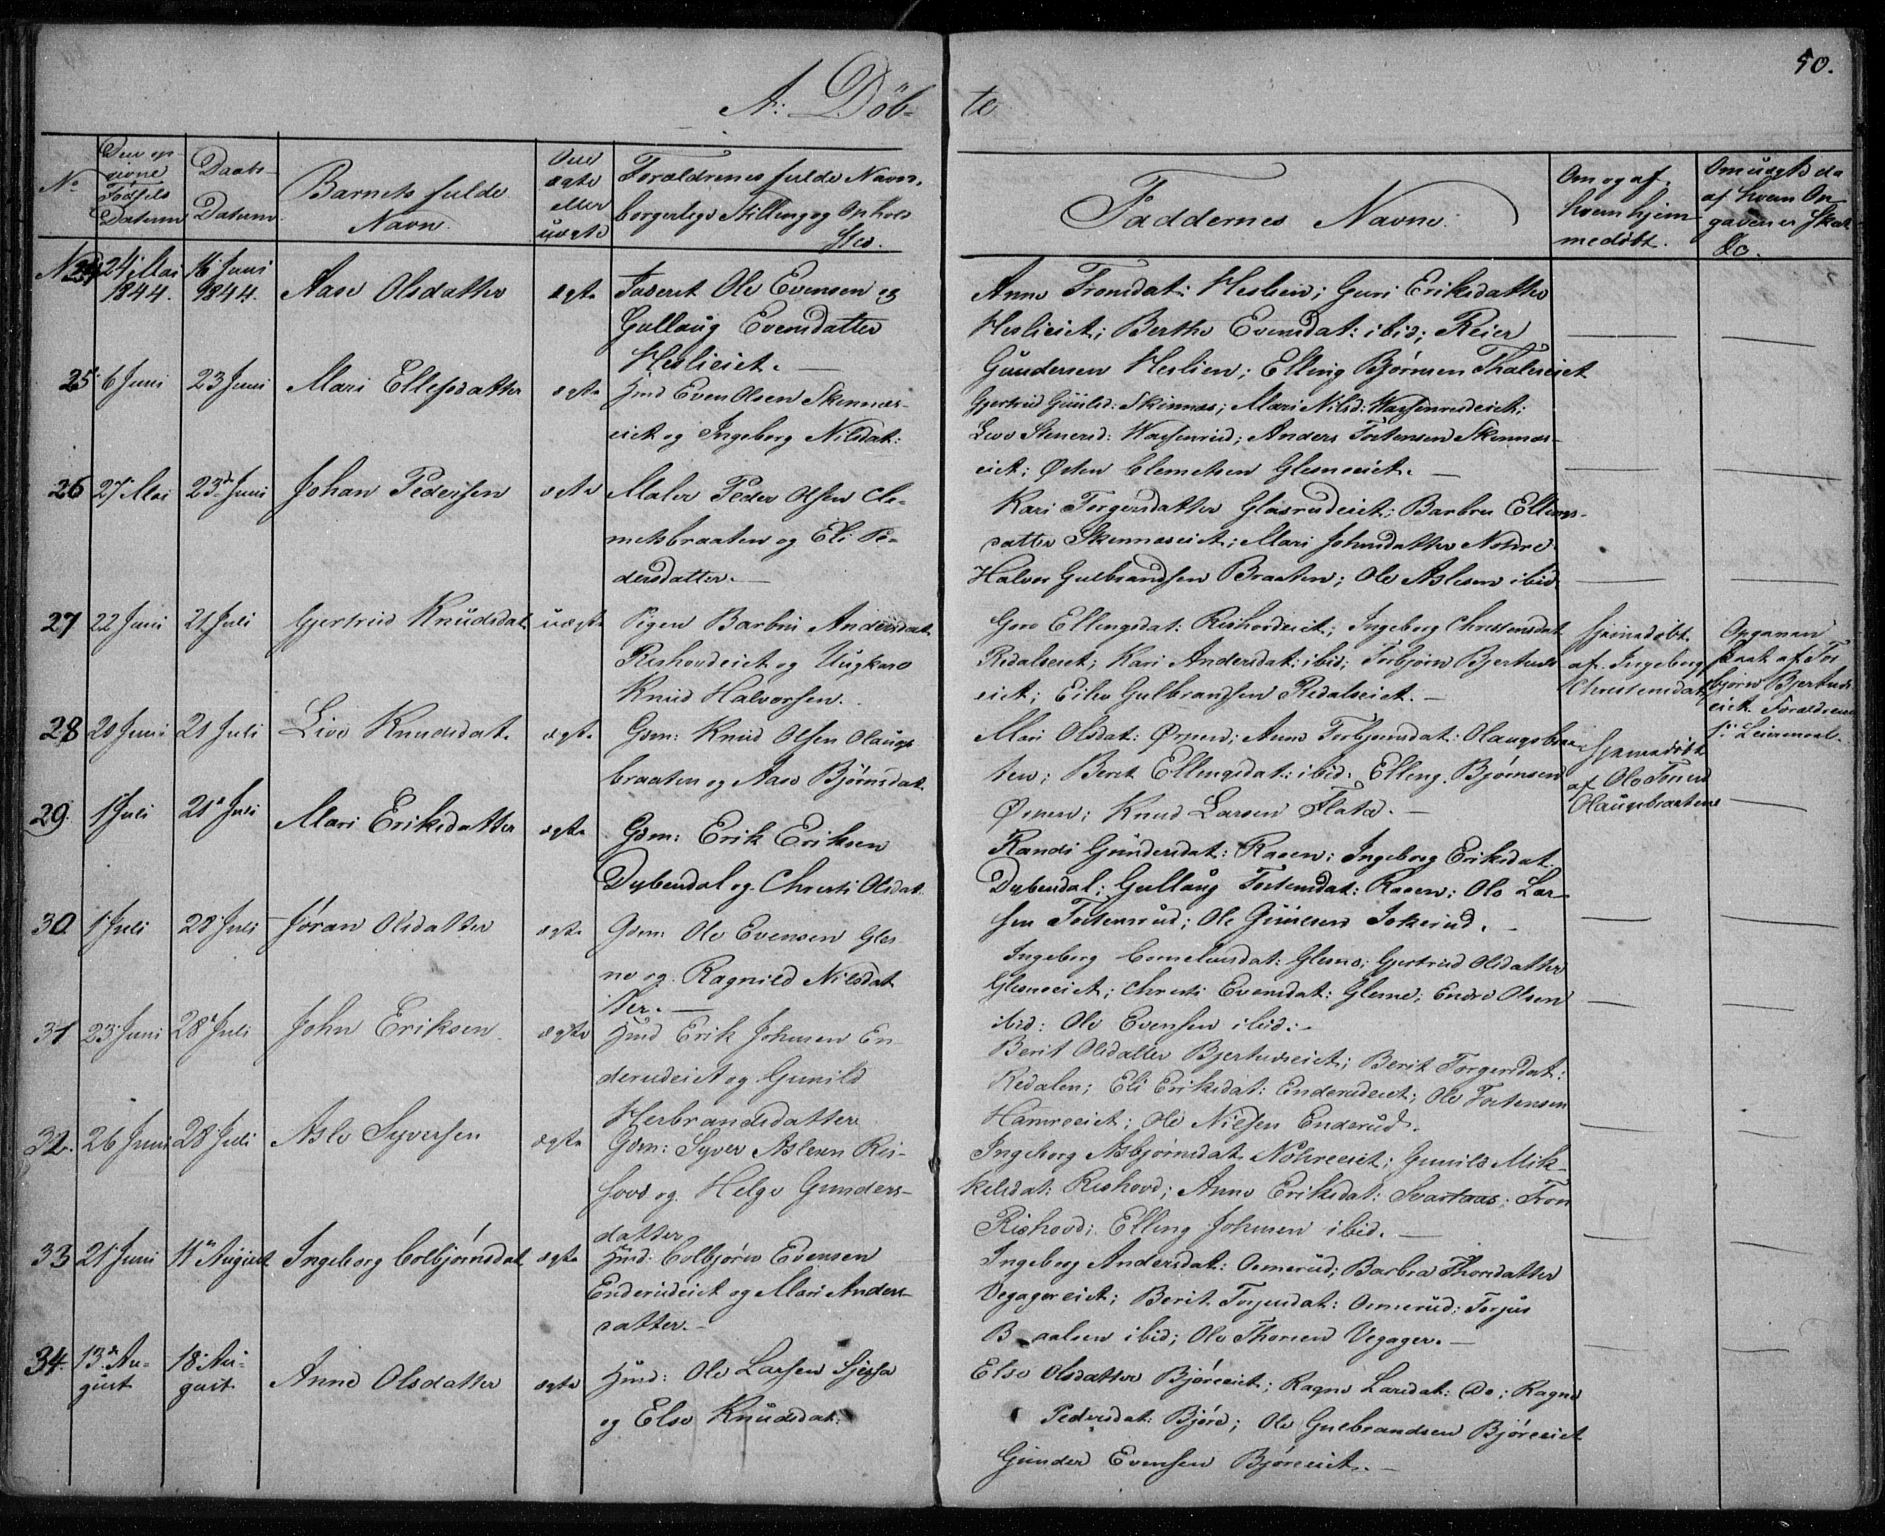 50.
A. Döb-
te
No
Den op-
givne
Fødsels
Datum
Daabs-
Datum
Barnets fulde
Navn.
Om
ægte
eller
uægte
Forældrenes fulde Navn,
borgerlige Stilling og Opholds
Sted.
Faddernes Navne.
Om og af
hvem hjem-
medøbt.
Om uægte da
af hvem An-
gaven er skeet
&c.
24 24 Mai
1844. 16 Juni
1844. Aase Olsdatter ægte
Gullaug Evensdatter
Heslieiet.
Anne Tronsdat: Heslien; Guri Eriksdatter
Heslieiet; Berthe Evensdat: ibid; Reier
Gundersen Heslien; Elling Bjørnsen
25 6 Juni 23 Juni Mari ægte
Hmd Even Olsen Skinnæs-
eiet og Ingeborg Nilsdat:
Skinnæs; Mari Nilsd:
Anders Tostensen Skinnæs-
eiet; Østen Clemetsen Glesneeiet.
26 27 Mai 23d Juni Johan Pedersen ægte
Maler Peder Olsen Cle-
metsbraaten og Eli Pe-
dersdatter.
Kari Torgersdatter Glasrudeiet; Barbru Ellings-
datter Skinnæseiet; Mari Johnsdatter
Halvor Gulbrandsen Braaten; Ole Aslesen ibid.
27 22 Juni 21 Juli Gjertrud Knudsdat. uægte
Pigen Barbru Andersdat.
Rishovdeiet og Ungkarl
Knud Halvorsen.
Goro Ellingsdat: Rishovdeiet; Ingeborg Christensdat
Redalseiet; Kari Andersdat: ibid; Torbjørn
eiet; Gulbrandsen Redalseiet.
Hjemmedøbt
af Ingeborg
Christensdat
Angaven
skeet af Tor-
bjørn
eiet. Forældrenes
1ste Leiermaal.
28 20 Juni 21 Juli Live Knudsdat. ægte
Gbm: Knud Olsen Olaugs-
braaten og Aase Bjørnsdat.
Mari Olsdat: Ørpen; Anne Torbjørnsdat: Olaugsbraa-
ten; Berit Ellingsdat: ibid: Elling Bjørnsen
Ørpen; Knud Larsen Flata.
Hjemmedøbt
af Ole
Olaugsbraaten
29. 1 Juli 21d Juli Mari Eriksdatter ægte
Gbm: Erik Eriksen
Dybendal og Christi Olsdat.
Randi Gundersdat: Raaen; Ingeborg Eriksdat.
Dybendal; Gullaug Tostensdat: Raaen; Ole Lar-
sen Tostensrud; Ole
30 1 Juli 28 Juli Jøran Olsdatter ægte
Gbm Ole Evensen Gles-
ne og Ragnild Nilsdat
ter.
Ingeborg Corneliusdat: Glesne; Gjertrud Olsdatter
Glesneeiet; Christi Evensdat: Glesne; Endre Olsen
ibid: Ole Evensen ibid.
31 23 Juni 28d Juli John Eriksen ægte
Hmd Erik Johnsen En-
derudeiet og Gunild
Herbrandsdatter
Berit Olsdatter; Berit Torgersdat:
Redalen; Eli Eriksdat: Enderudeiet; Ole Tostensen
Hamreeiet; Ole Nielsen Enderud.
32. 26 Juni 28 Juli Asle Syversen ægte
Gbm: Syver Aslesen Ris-
hovd og Helge Gunders-
datter
Ingeborg Asbjørnsdat. Gunild Mik-
kelsdat: Rishovd; Anne Eriksdat: Svartaas; Tron
Rishovd; Elling Johnsen ibid.
33 21 Juni 11te August Ingeborg Colbjørnsdat ægte
Hmd: Colbjørn Evensen
Enderudeiet og Mari Anders-
datter.
Ingeborg Andersdat: Ormerud; Barbra Thorsdatter
Vegagereiet; Berit Torjusdat: Ormerud; Torjus
ibid; Ole Thorsen Vegager.
34. 13d Au-
gust 18 Au-
gust Anne Olsdatter ægte
Hmd: Ole Larsen
og Else Knudsdat.
Else Olsdatter Bjøreeiet; Ragne Larsdat: do; Ragne
Pedersdat: Bjøre; Ole Gulbrandsen Bjøreeiet
Gunder Evensen Bjøreeiet.